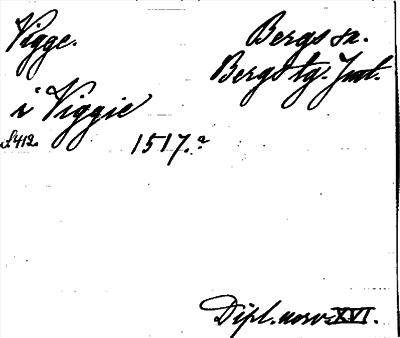 Vigge.
Bergs sn.
Bergs tg. Jmt.
i Viggie
s. 412. 1517.a
Dipl. norv. XVI.